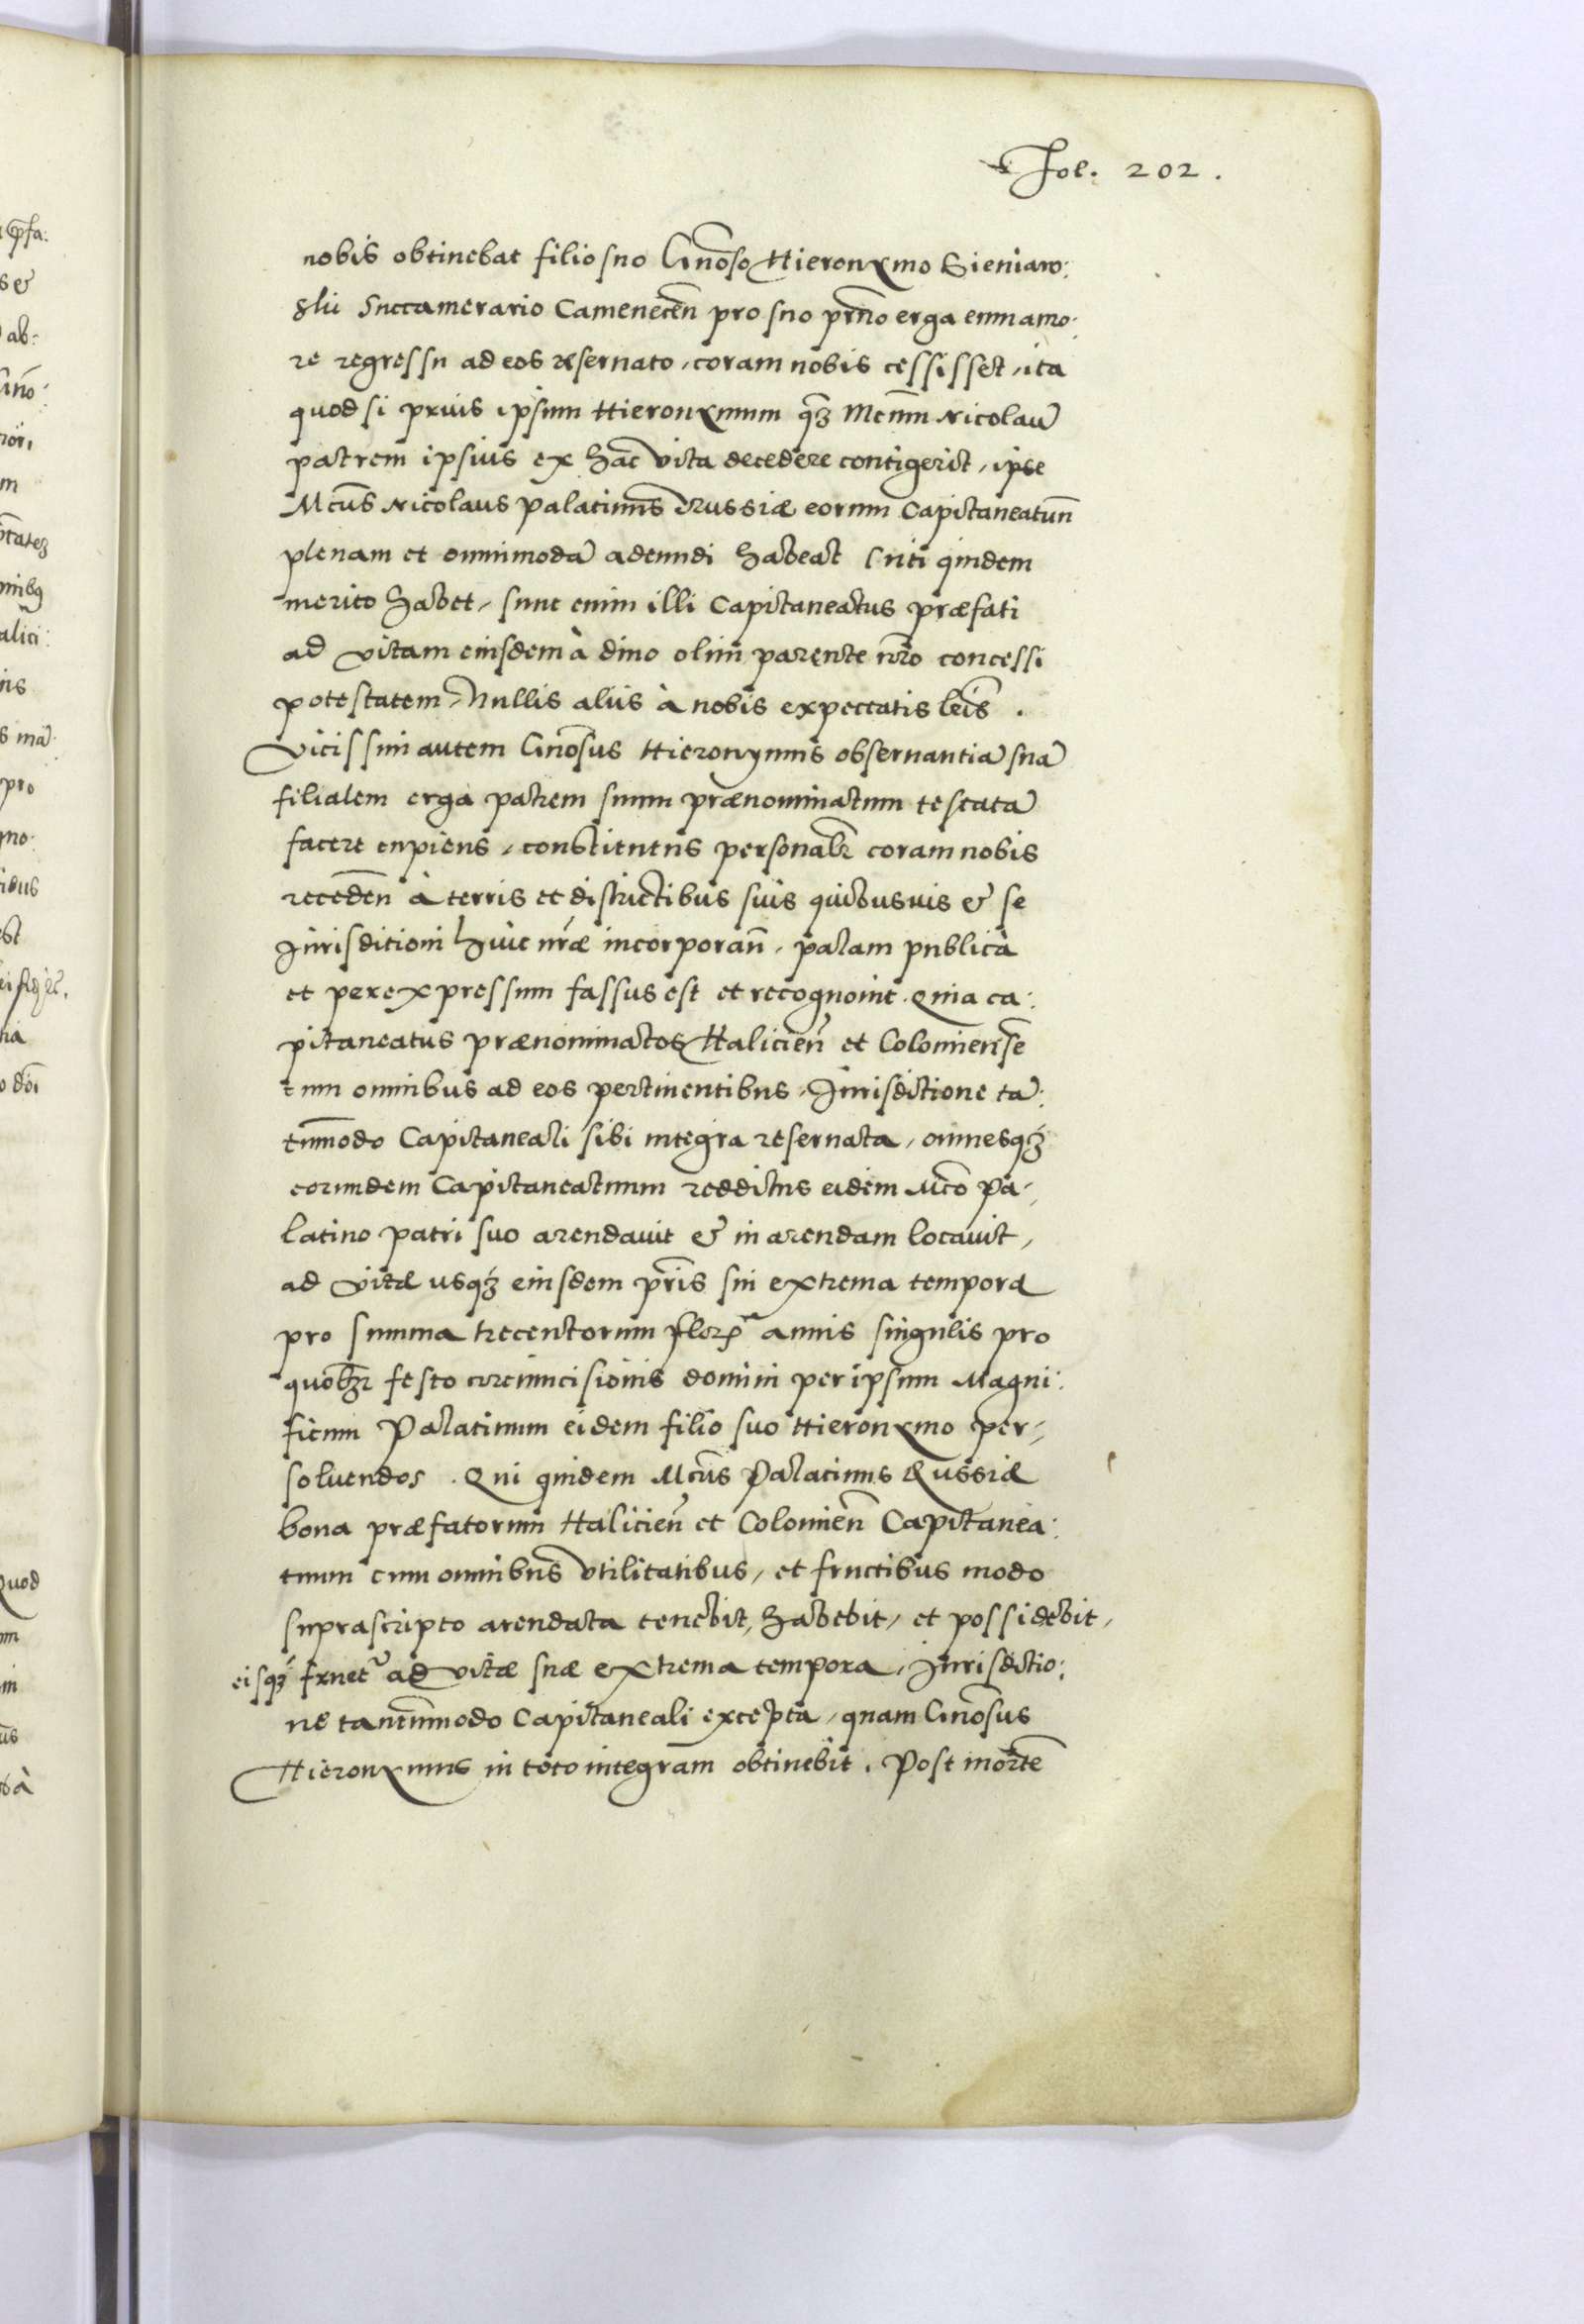 Fol. 202.
nobis obtinebat filio suo Gnoso Hieronymo Sieniaw:
skii Succamerario Camenecen̄ pro suo prno erga eum amo:
re regressu ad eos reservato, coram nobis cessisset, ita
quod si prius ipsum Hieronymum qȝ Mcum Nicolaū
patrem ipsius ex hac vita decedere contigerit, ipse
Mcus Nicolaus Palatinus Russiæ eorum Capitaneatuum
plenam et omnimodā adeundi habeat (uti quidem
merito habet, sunt enim illi Capitaneatus præfati
ad vitam eiusdem à divo olim parente nro concessi
potestatem, Nullis aliis à nobis expectatis lris.
Vicissim autem Gnosus Hieronymus observantiā suā
filialem erga patrem suum prænominatum testatā
facere cupiens, constitutus personalr coram nobis
receden̄ à terris et districtibus suis quibusvis & se
Jurisditioni huic nræ incorporan̄, palam publicè
et per expressum fassus est et recognovit. Quia ca:
pitaneatus prænominatos Halicien̄ et Colomiense
cum omnibus ad eos pertinentibus, Jurisdictione tā:
tummodo Capitaneali sibi integra reservata, omnesqȝ
eorundem Capitaneatuum redditus eidem Mco Pa-
latino patri suo arendavit & in arendam locavit,
ad vitæ usqȝ eiusdem pris sui extrema tempora
pro summa trecentorum flor annis singulis pro
quolȝ festo circumcisionis domini per ipsum Magni:
ficum Palatinum eidem filio suo Hieronymo per-
solvendos. Qui quidem Mcus Palatinus Russiæ
bona præfatorum Halicien̄ et Colomien̄ Capitanea:
tuum cum omnibus utilitatibus, et fructibus modo
suprascripto arendata tenebit, habebit, et possidebit,
eisqȝ fruet ad vitæ suæ extrema tempora, Jurisdictio:
ne tantummodo Capitaneali excepta, quam Gnosus
Hieronymus in toto integram obtinebit. Post mortē